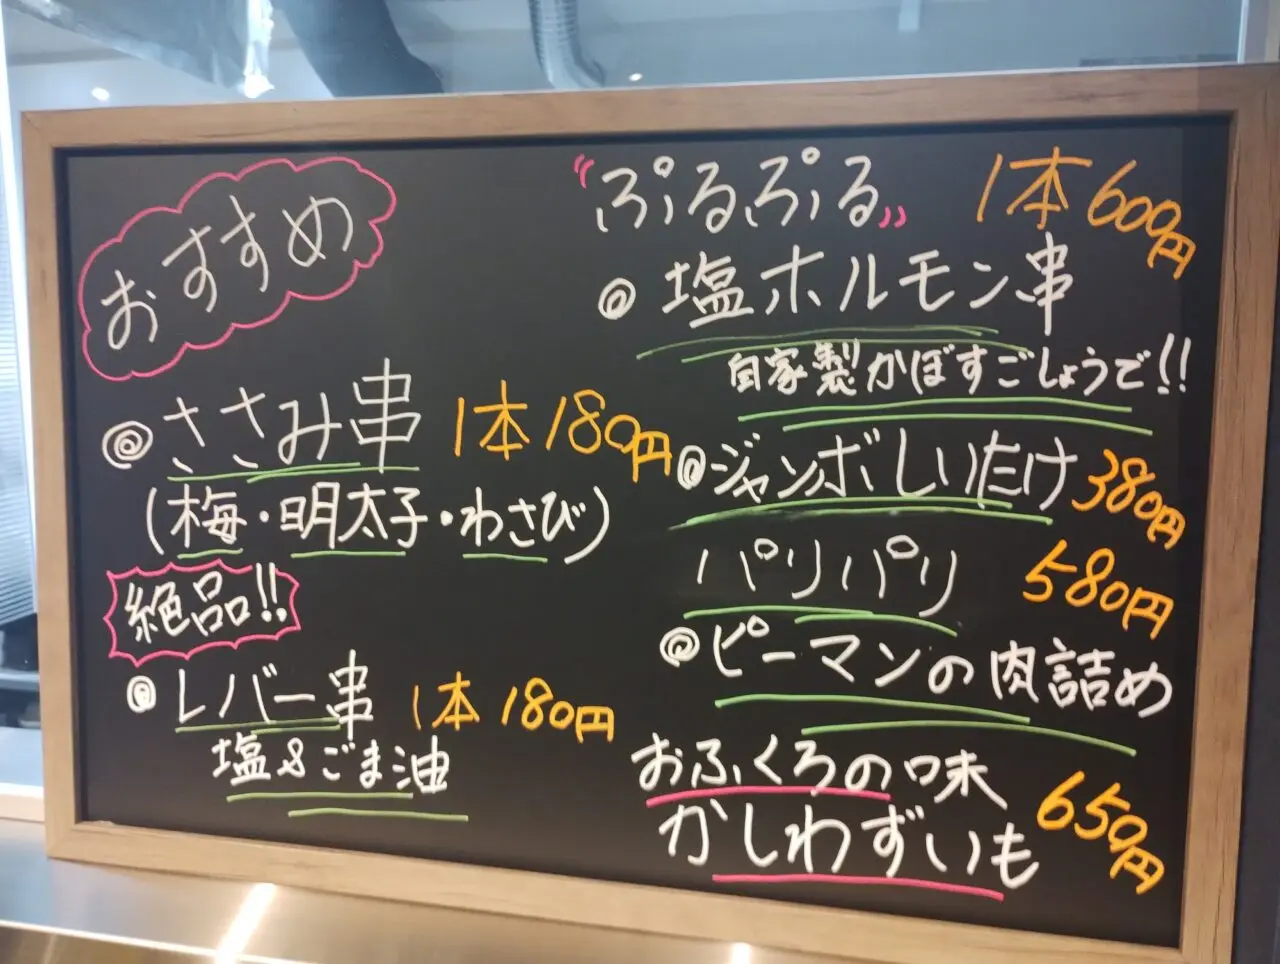 おすすめ
◎ ささみ串 1本180円
(梅・明太子・わさび)
絶品!!
◎ レバー串 1本180円
塩&ごま油
“ぷるぷる” 1本600円
◎ 塩ホルモン串
自家製かぼすごしょうで!!
◎ ジャンボしいたけ 380円
パリパリ 580円
◎ ピーマンの肉詰め
おふくろの味
かしわずいも 650円